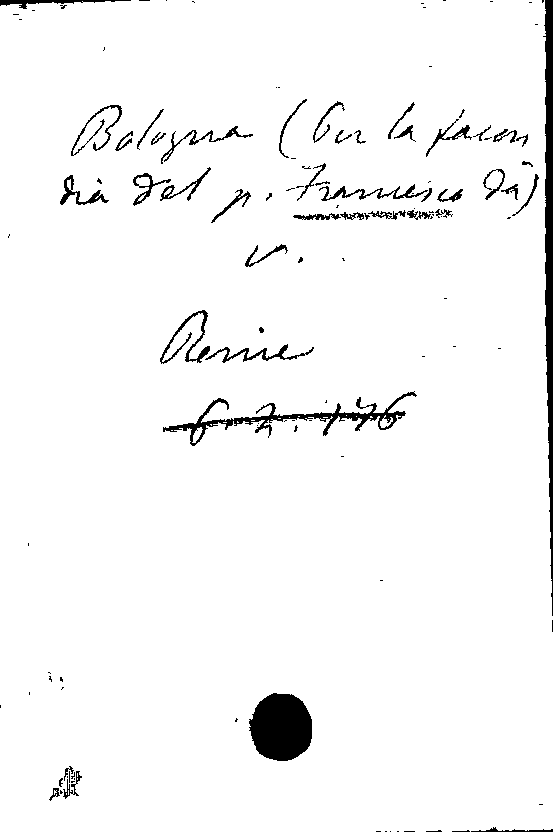 Bologna (Per la facon
dia del p. Francesco da)
v.
Rime
6.2.176